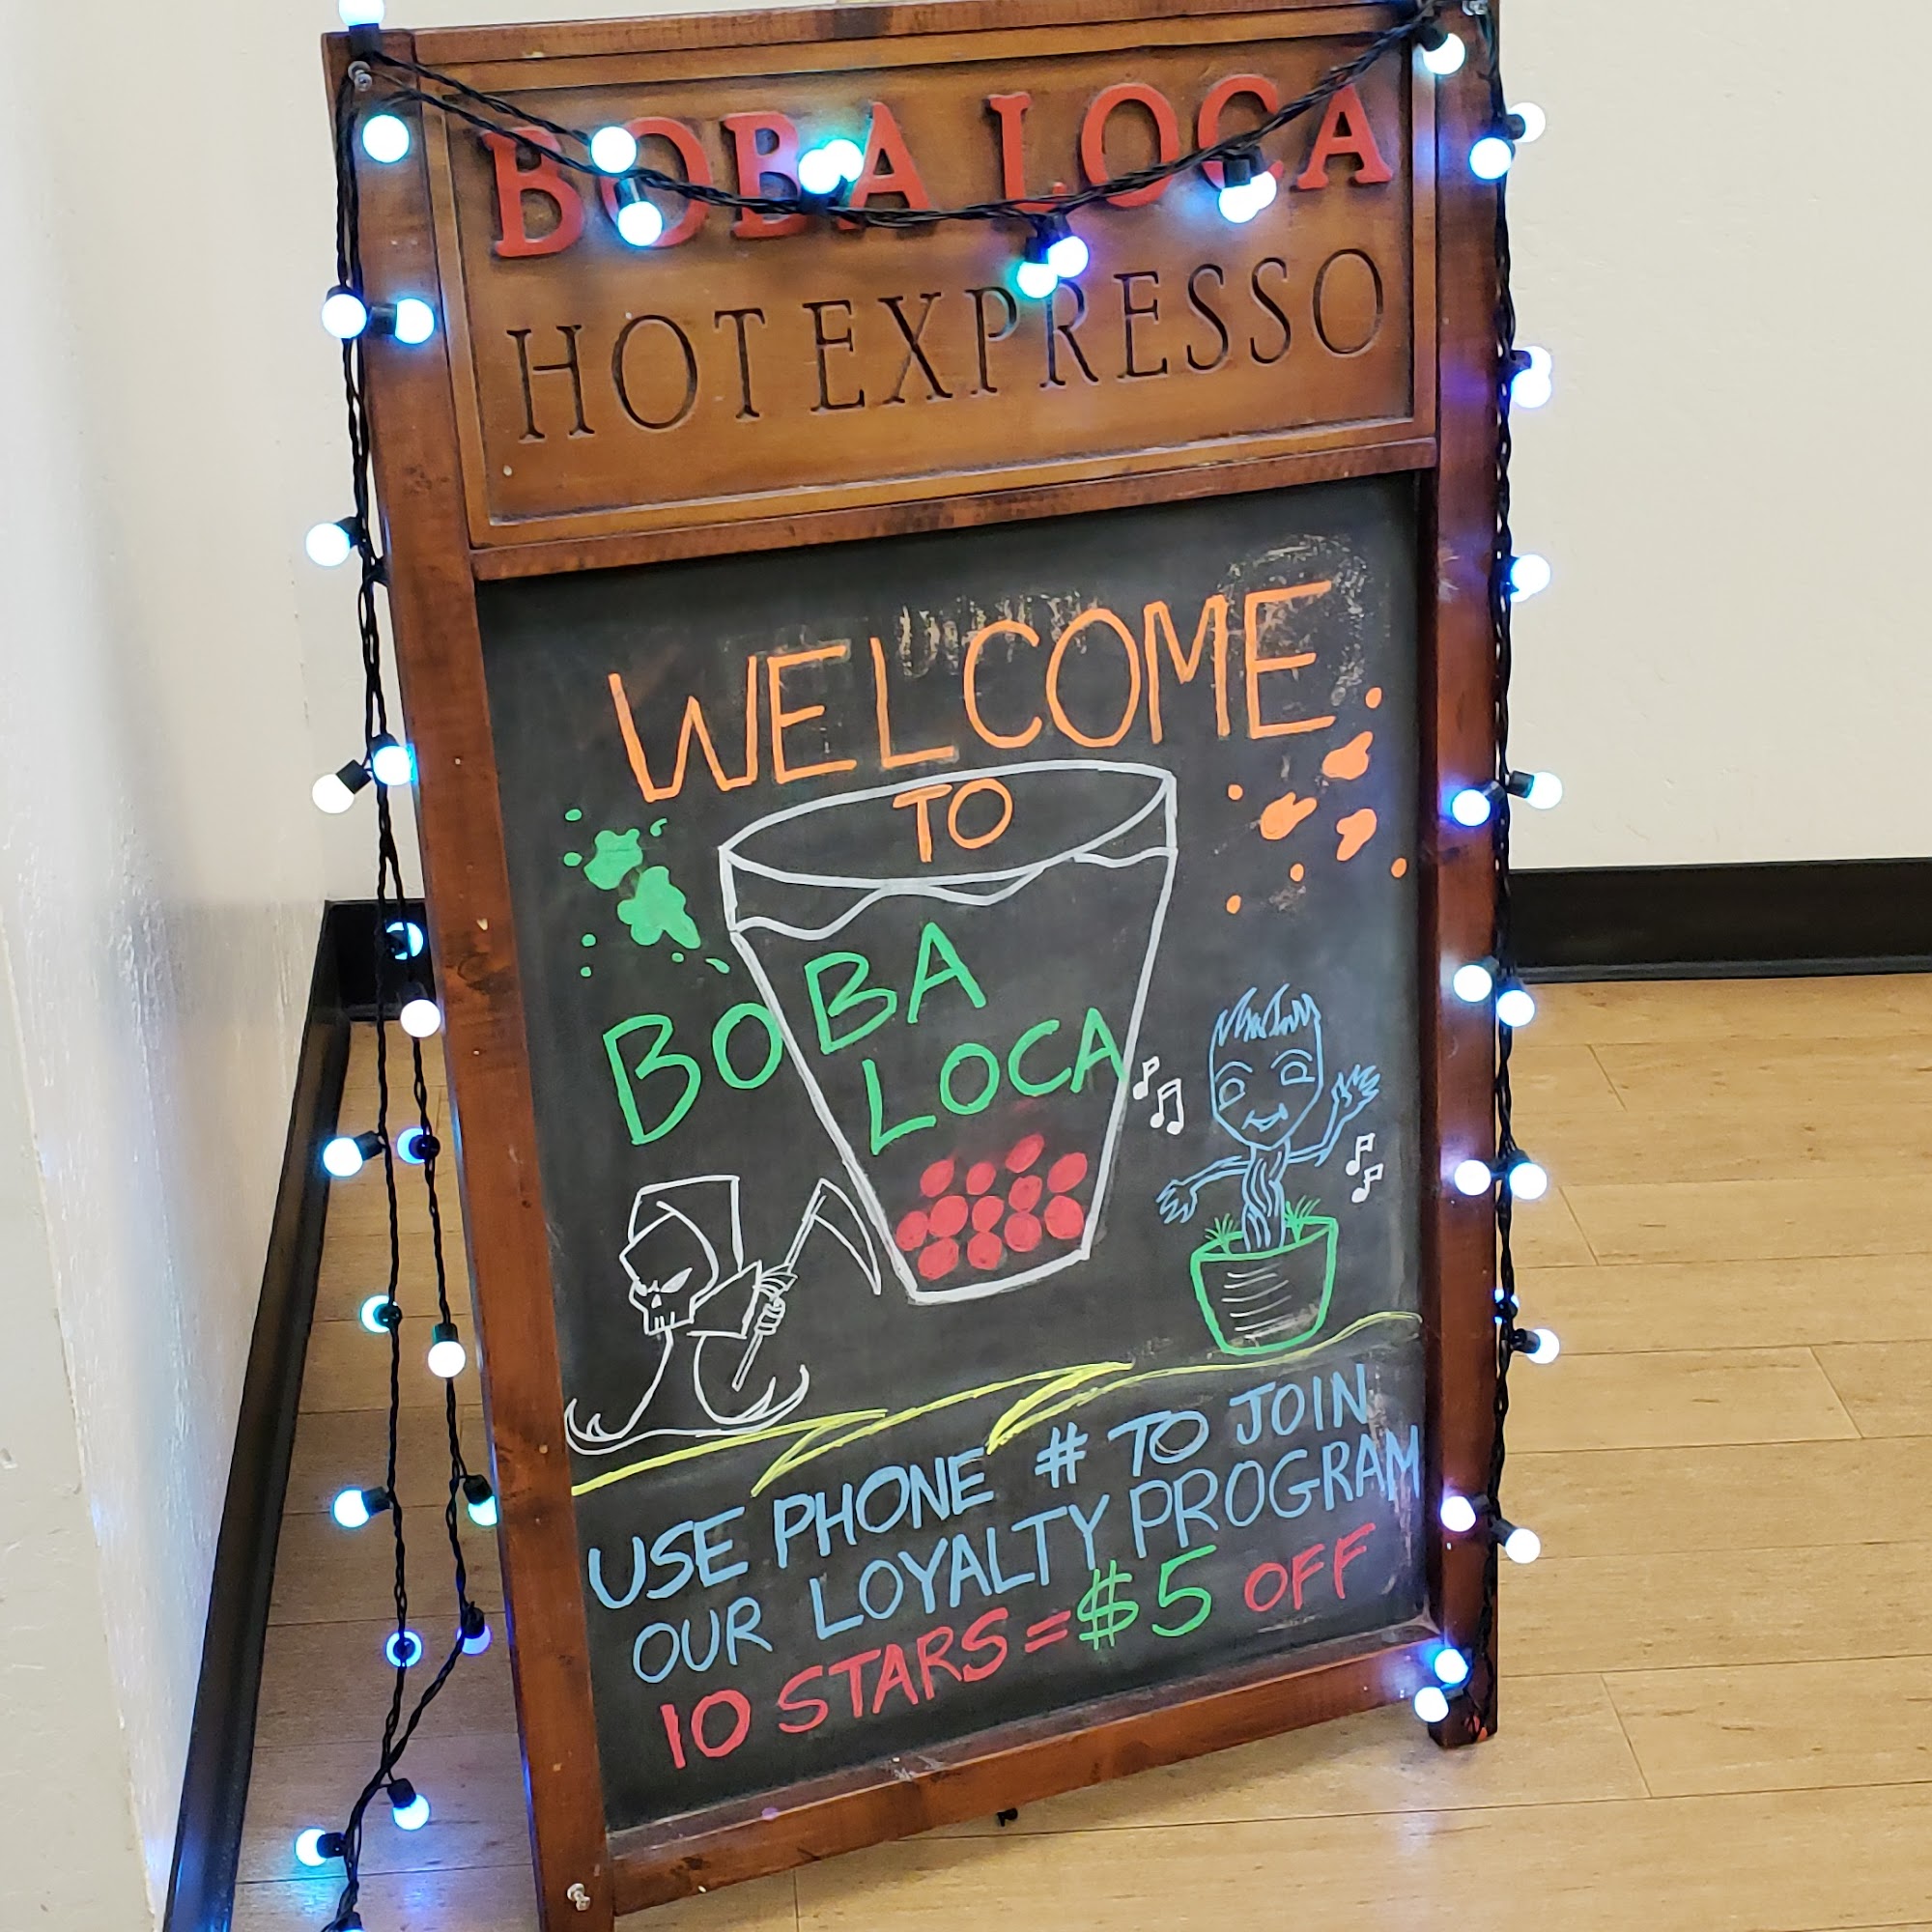 BOBA LOCA
HOT EXPRESSO
WELCOME
TO
BOBA
LOCA
USE PHONE # TO JOIN
OUR LOYALTY PROGRAM
10 STARS = $5 OFF